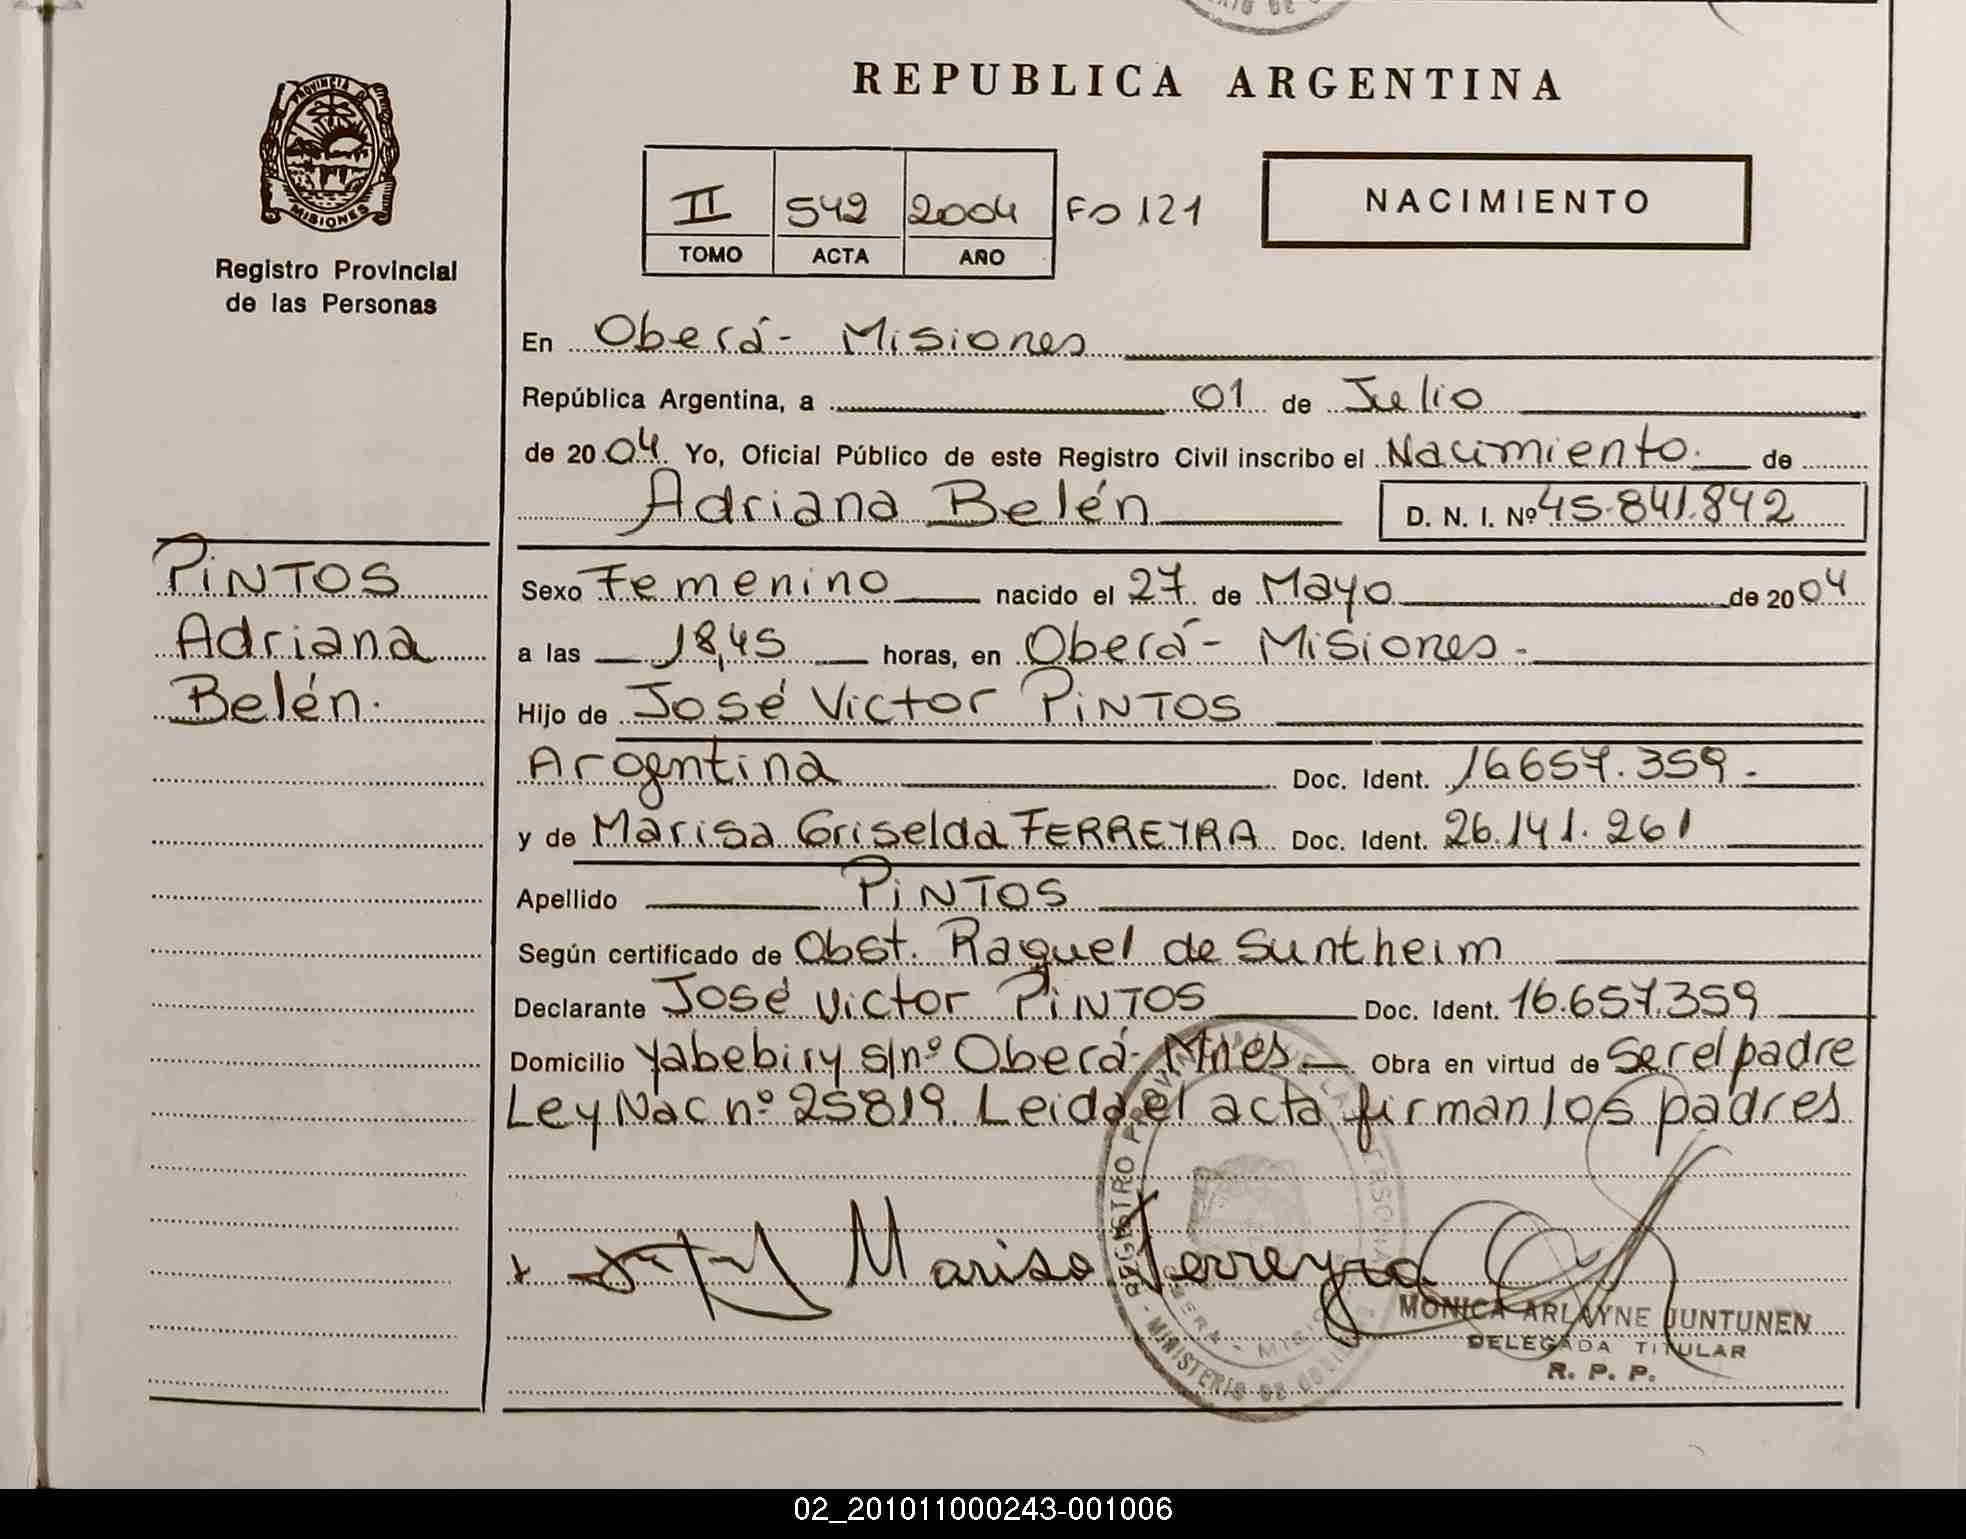 REPUBLICA ARGENTINA
PROVINCIA D
MISIONES
Registro Provincial
de las Personas
II 542 2004 Fo 121
TOMO ACTA AÑO
NACIMIENTO
En Oberá - Misiones
República Argentina, a 01 de Julio
de 2004 Yo, Oficial Público de este Registro Civil inscribo el Nacimiento. de
Adriana Belén D. N. I. Nº 45.841.842
PINTOS
Adriana
Belén.
Sexo Femenino nacido el 27 de Mayo de 2004
a las 18,45 horas, en Oberá - Misiones -
Hijo de José Victor PINTOS
Argentina Doc. Ident. 16.657.359.-
y de Marisa Griselda FERREYRA Doc. Ident. 26.141.261
Apellido PINTOS
Según certificado de Obst. Raquel de Suntheim
Declarante José Victor PINTOS Doc. Ident. 16.657.359
Domicilio Yabebiry s/nº Oberá - Mnes. Obra en virtud de Ser el padre
Ley Nac nº 25819. Leida el acta firman los padres
Marisa Ferreyra
MONICA ARLAYNE JUNTUNEN
DELEGADA TITULAR
R. P. P.
02_201011000243-001006